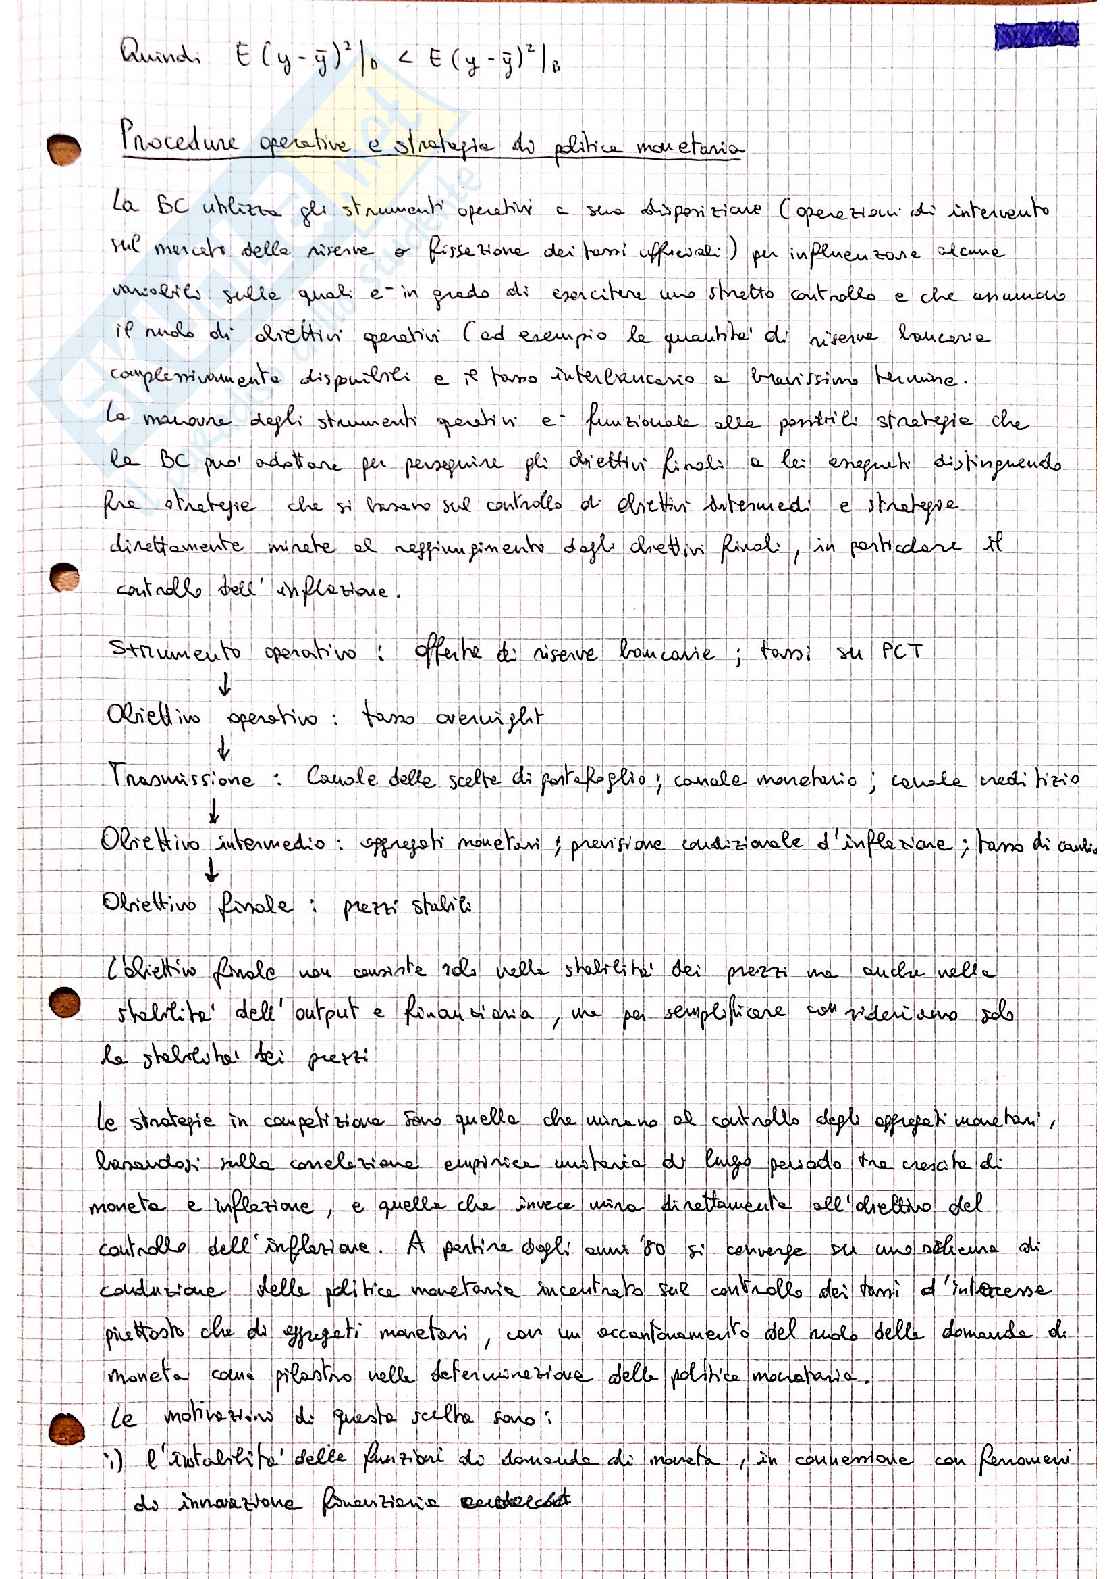 Quindi E(y-ȳ)²|D < E(y-ȳ)²|B
Procedure operative e strategia di politica monetaria
La BC utilizza gli strumenti operativi a sua disposizione (operazioni di intervento
sul mercato delle riserve o fissazione dei tassi ufficiali) per influenzare alcune
variabili sulle quali e' in grado di esercitare uno stretto controllo e che assumono
il ruolo di obiettivi operativi (ad esempio la quantita' di riserve bancarie
complessivamente disponibili e il tasso interbancario a brevissimo termine.
La manovra degli strumenti operativi e' funzionale alle possibili strategie che
la BC puo' adottare per perseguire gli obiettivi finali a lei assegnati distinguendo
fra strategie che si basano sul controllo di obiettivi intermedi e strategie
direttamente mirate al raggiungimento degli obiettivi finali, in particolare il
controllo dell'inflazione.
Strumento operativo : offerta di riserve bancarie ; tassi su PCT
↓
Obiettivo operativo : tasso overnight
↓
Trasmissione : Canale delle scelte di portafoglio ; canale monetario ; canale creditizio
↓
Obiettivo intermedio : aggregati monetari ; previsione condizionale d'inflazione ; tasso di cambio
↓
Obiettivo finale : prezzi stabili
L'obiettivo finale non consiste solo nella stabilita' dei prezzi ma anche nella
stabilita' dell'output e finanziaria, ma per semplificare consideriamo solo
la stabilita' dei prezzi
Le strategie in competizione sono quella che mirano al controllo degli aggregati monetari,
basandosi sulla correlazione empirica unitaria di lungo periodo tra crescita di
moneta e inflazione, e quella che invece mira direttamente all'obiettivo del
controllo dell'inflazione. A partire dagli anni '80 si converge su uno schema di
conduzione della politica monetaria incentrato sul controllo dei tassi d'interesse
piuttosto che di aggregati monetari, con un accantonamento del ruolo della domanda di
moneta come pilastro nella determinazione della politica monetaria.
Le motivazioni di questa scelta sono:
i) l'instabilita' delle funzioni di domanda di moneta, in connessione con fenomeni
di innovazione finanziaria